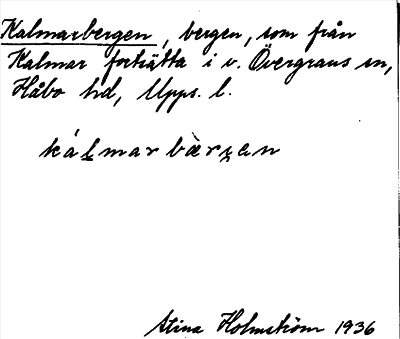 Kalmarbergen, bergen, som från
Kalmar fortsätta i v. Övergrans sn,
Håbo hd, Upps. l.
kálmarbærgen
Stina Holmström 1936